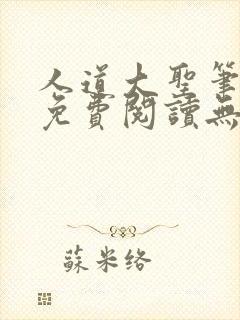 人道大聖筆
免費閱讀無
蘇米络